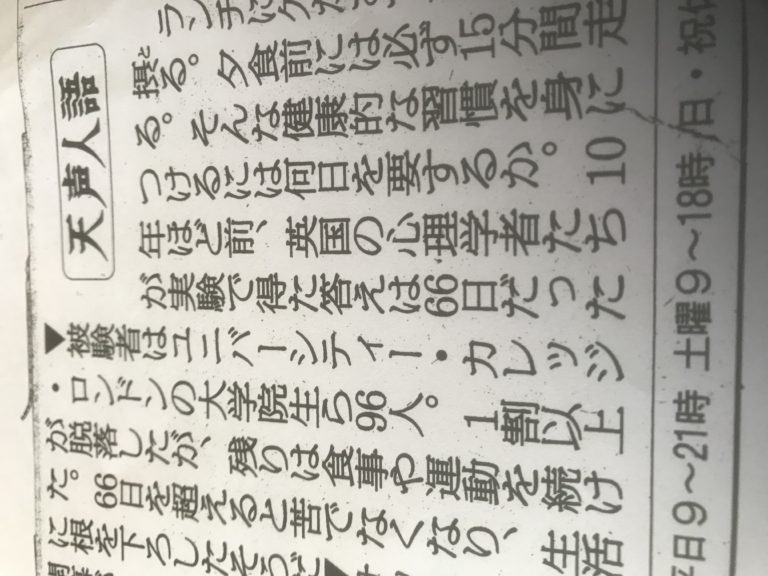 天声人語
ランチに
摂る。夕食前には必ず15分間走
る。そんな健康的な習慣を身に
つけるには何日を要するか。10
年ほど前、英国の心理学者たち
が実験で得た答えは66日だった
▼被験者はユニバーシティー・カレッジ
・ロンドンの大学院生ら96人。1割以上
が脱落したが、残りは食事や運動を続け
た。66日を超えると苦でなくなり、生活
に根を下ろしたそうだ
平日9〜21時 土曜9〜18時/日・祝休